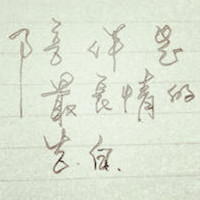 陪伴是
最長情的
告白.